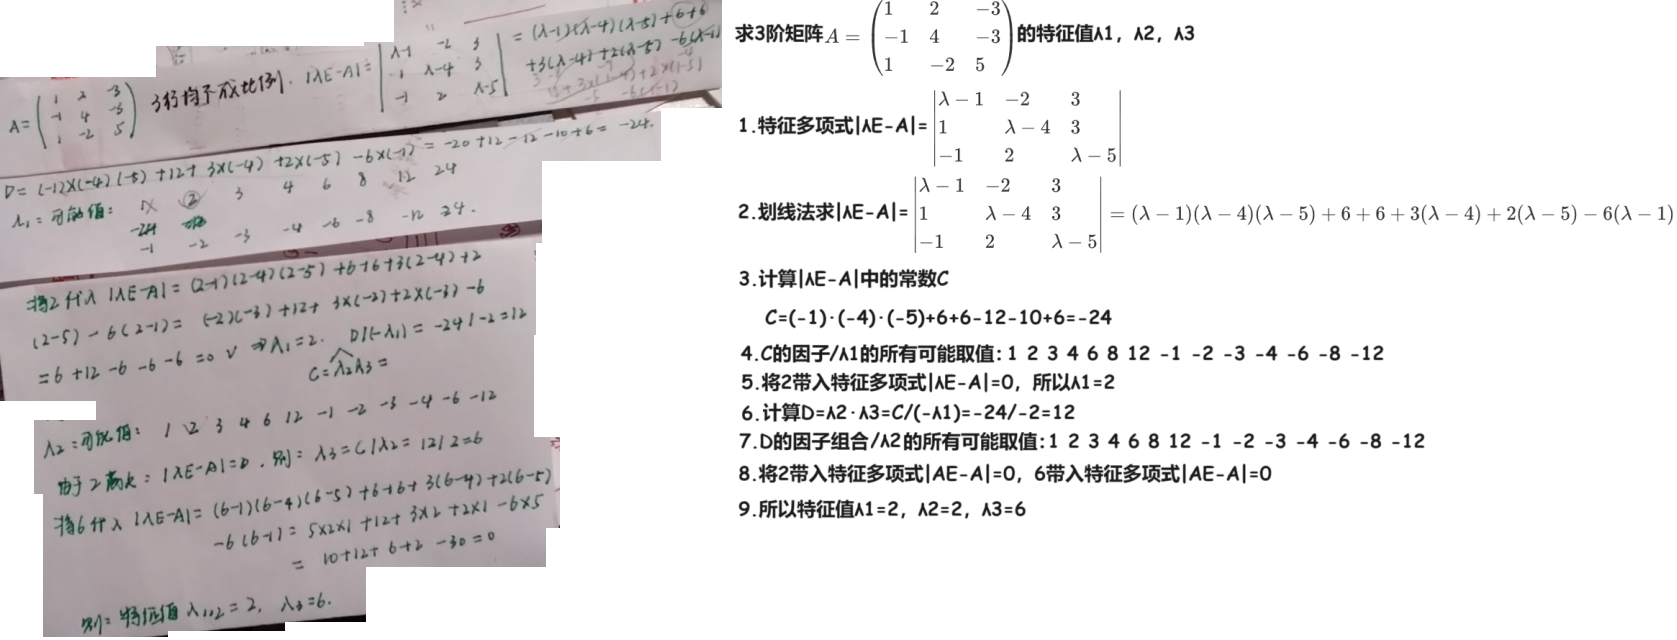 A=(1 2 -3
-1 4 -3
1 -2 5) 3行均不成比例. |λE-A|= |λ-1 -2 3
1 λ-4 3
-1 2 λ-5| = (λ-1)(λ-4)(λ-5)+6+6
+3(λ-4)+2(λ-5)-6(λ-1)
D= (-1)×(-4)(-5)+12+3×(-4)+2×(-5)-6×(-1) = -20+12-12-10+6= -24.
λ1=可能值: 1× ② 3 4 6 8 12 24
-1 -2 -3 -4 -6 -8 -12 24.
将2代入 |λE-A|= (2-1)(2-4)(2-5)+6+6+3(2-4)+2
(2-5)-6(2-1)= (-2)(-3)+12+ 3×(-2)+2×(-3)-6
=6+12-6-6-6=0 √ ⇒λ1=2. D/(-λ1)= -24/-2=12
C=λ2λ3=
λ2=可能值: 1 2 3 4 6 12 -1 -2 -3 -4 -6 -12
由于2满足: |λE-A|=0. 则: λ3=C/λ2= 12/2=6
将6代入 |λE-A|= (6-1)(6-4)(6-5)+6+6+3(6-4)+2(6-5)
-6(6-1)= 5×2×1+12+3×2+2×1-6×5
= 10+12+6+2-30=0
则: 特征值λ1,2=2, λ3=6.
求3阶矩阵A = (1 2 -3
-1 4 -3
1 -2 5)的特征值λ1，λ2，λ3
1.特征多项式|λE-A|= |λ-1 -2 3
1 λ-4 3
-1 2 λ-5|
2.划线法求|λE-A|= |λ-1 -2 3
1 λ-4 3
-1 2 λ-5| = (λ-1)(λ-4)(λ-5)+6+6+3(λ-4)+2(λ-5)-6(λ-1)
3.计算|λE-A|中的常数C
C=(-1)·(-4)·(-5)+6+6-12-10+6=-24
4.C的因子/λ1的所有可能取值: 1 2 3 4 6 8 12 -1 -2 -3 -4 -6 -8 -12
5.将2带入特征多项式|λE-A|=0，所以λ1=2
6.计算D=λ2·λ3=C/(-λ1)=-24/-2=12
7.D的因子组合/λ2的所有可能取值:1 2 3 4 6 8 12 -1 -2 -3 -4 -6 -8 -12
8.将2带入特征多项式|AE-A|=0，6带入特征多项式|AE-A|=0
9.所以特征值λ1=2，λ2=2，λ3=6